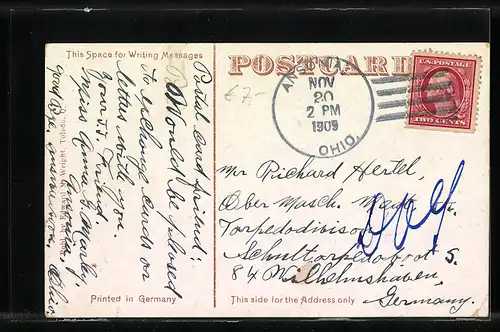 This Space for Writing Messages
POSTCARD
Postal card friend:
Would be pleased
to exchange cards or
letters with you.
Your Friend
Miss Anna E.
Good bye, answer soon, Ohio
Printed in Germany
€ 7-
NOV
20
2 PM
1909
OHIO.
U.S. POSTAGE
TWO CENTS
Mr Richard Hertel,
Ober Masch. Maat
Torpedodivision
Schultorpedoboot S.
84 Wilhelmshaven,
Germany.
This side for the Address only